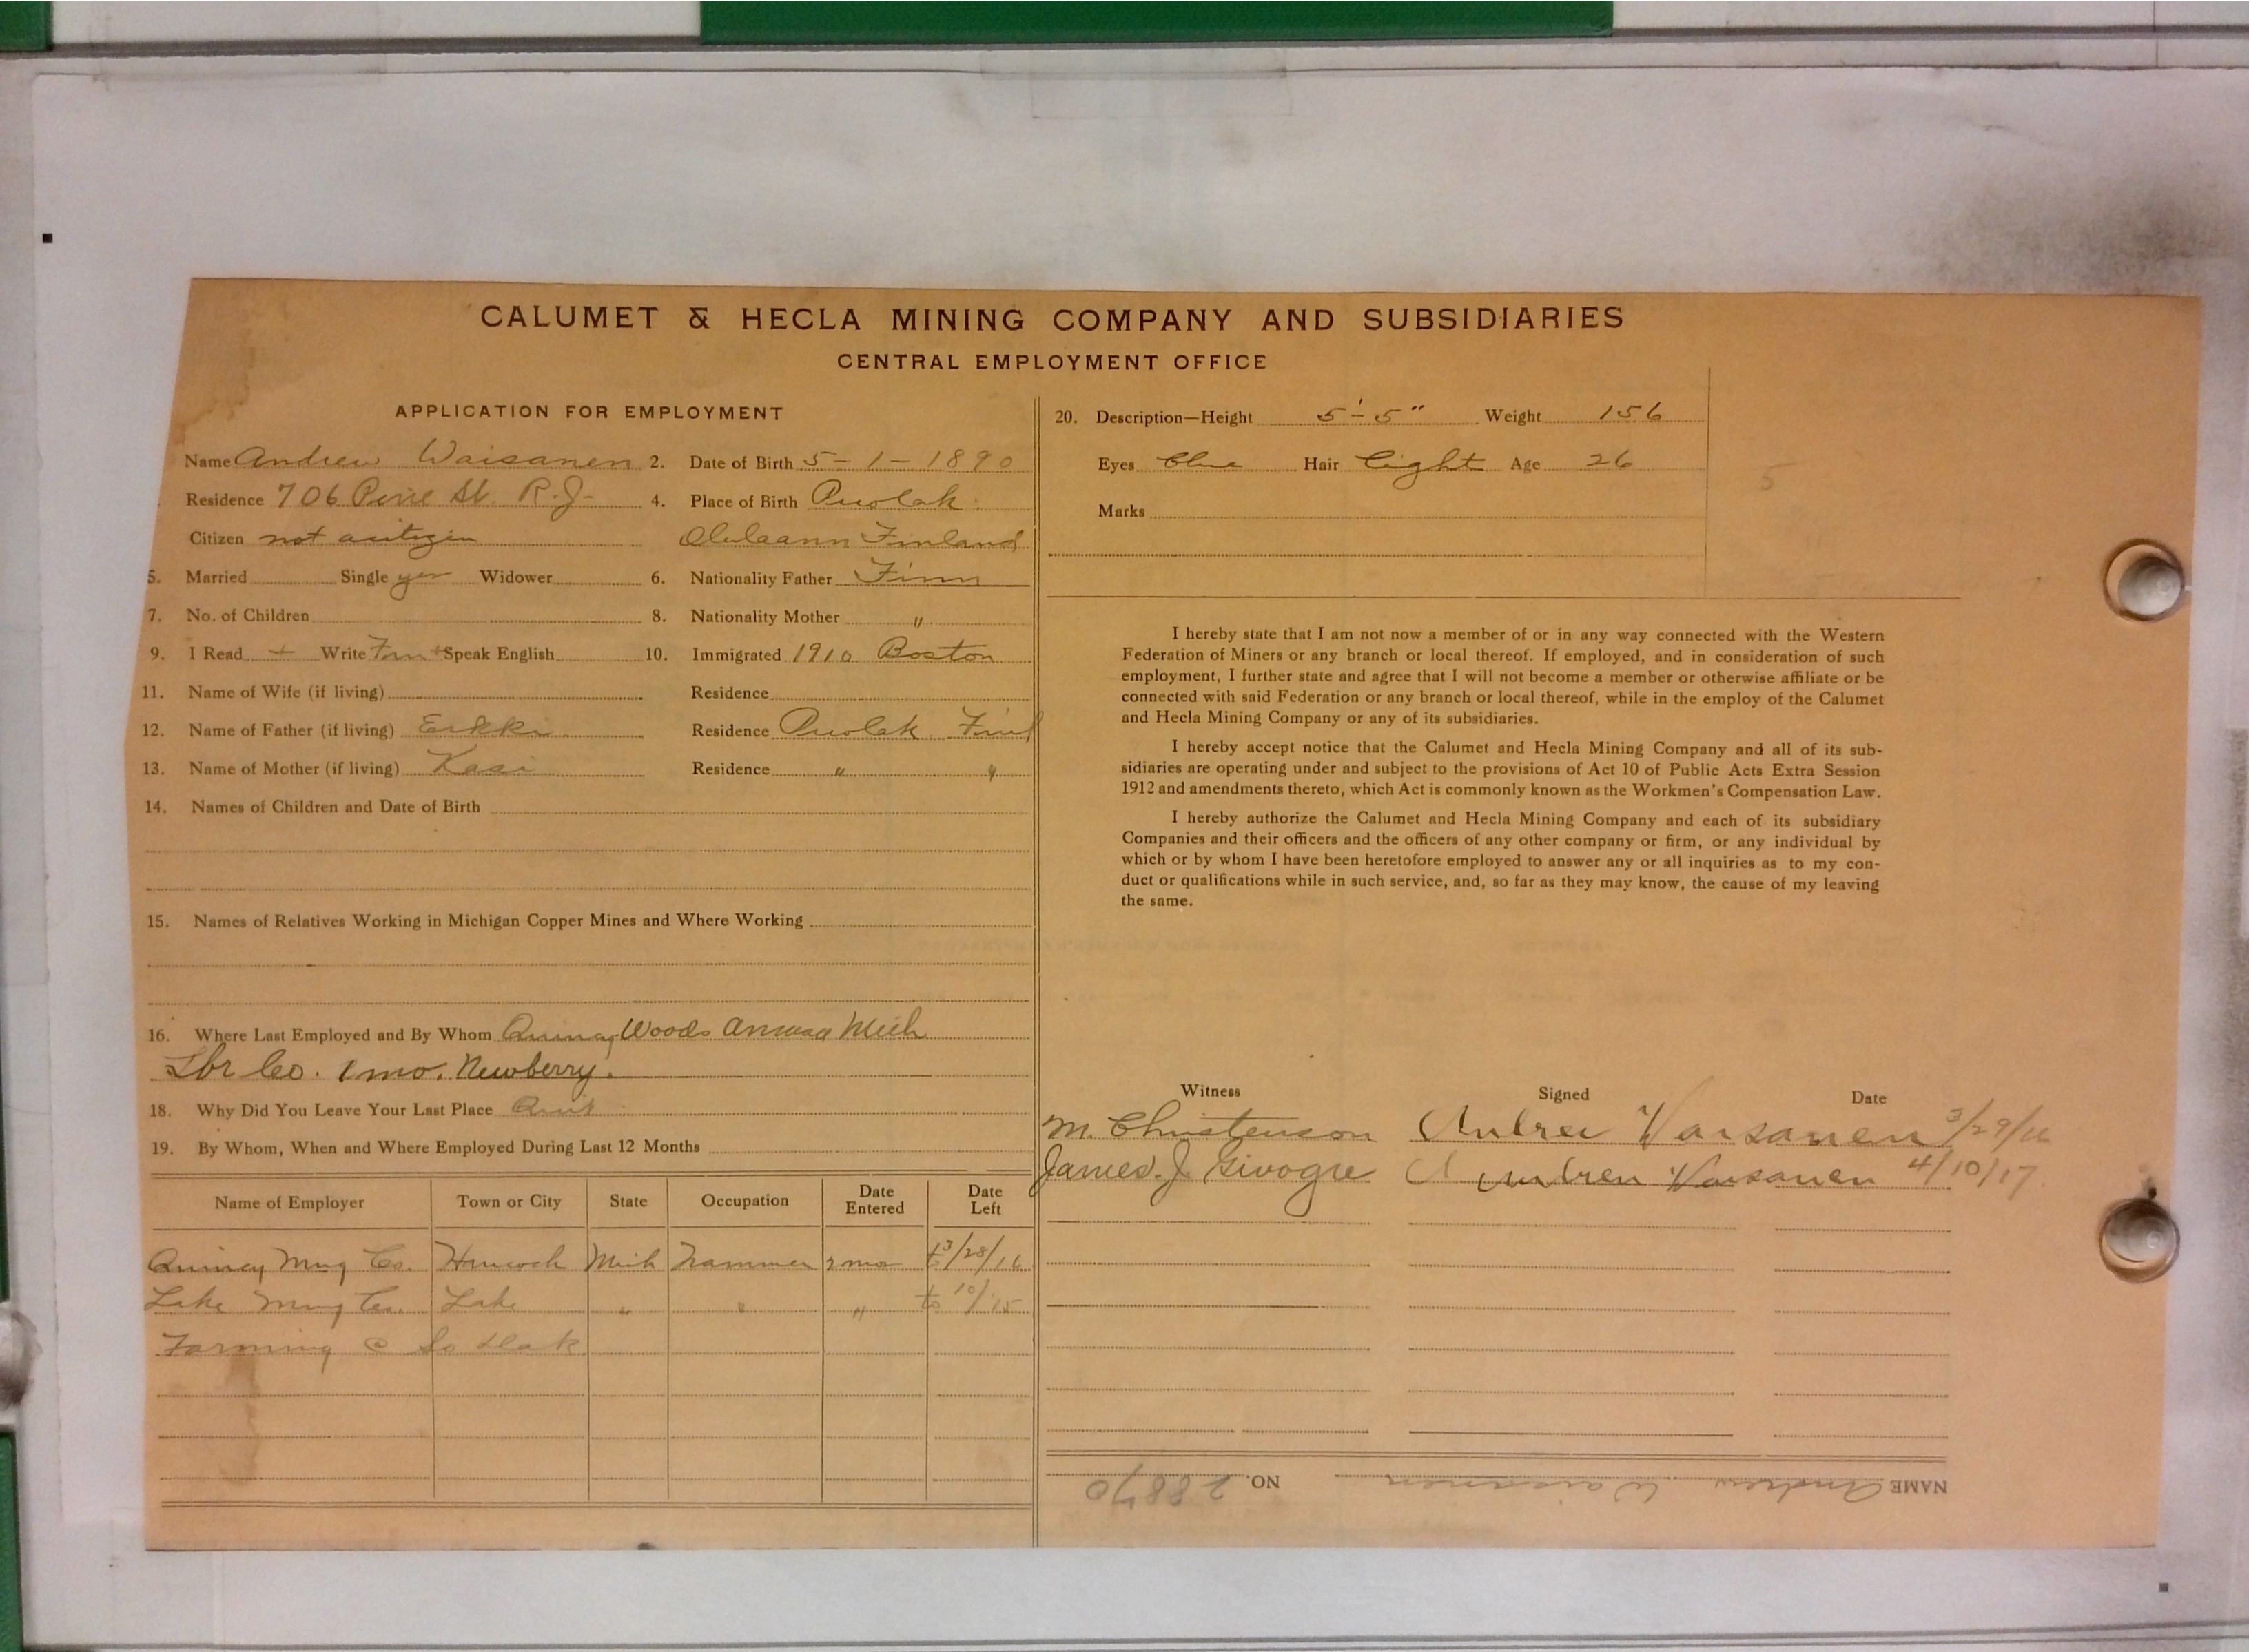 CALUMET & HECLA MINING COMPANY AND SUBSIDIARIES
CENTRAL EMPLOYMENT OFFICE
APPLICATION FOR EMPLOYMENT
Name Andrew Waisanen 2. Date of Birth 5-1-1890
Residence 706 Pine St. R.J. 4. Place of Birth Puolak.
Citizen not a citizen Finland
5. Married Single yes Widower 6. Nationality Father Finn
7. No. of Children 8. Nationality Mother "
9. I Read + Write Finn + Speak English 10. Immigrated 1910 Boston
11. Name of Wife (if living) Residence
12. Name of Father (if living) Erkki Residence Puolak Finl
13. Name of Mother (if living) Residence " "
14. Names of Children and Date of Birth
15. Names of Relatives Working in Michigan Copper Mines and Where Working
16. Where Last Employed and By Whom Quincy Woods Mich
Lbr Co. 1 mo. Newberry.
18. Why Did You Leave Your Last Place Quit
19. By Whom, When and Where Employed During Last 12 Months
Name of Employer Town or City State Occupation Date Entered Date Left
Quincy Mng Co. Hancock Mich Trammer 2 mos to 3/28/16
Lake Mng Co. Lake " " " to 10/15
Farming @ So Dak
20. Description—Height 5'-5" Weight 156
Eyes Blue Hair Light Age 26
Marks
5
I hereby state that I am not now a member of or in any way connected with the Western
Federation of Miners or any branch or local thereof. If employed, and in consideration of such
employment, I further state and agree that I will not become a member or otherwise affiliate or be
connected with said Federation or any branch or local thereof, while in the employ of the Calumet
and Hecla Mining Company or any of its subsidiaries.
I hereby accept notice that the Calumet and Hecla Mining Company and all of its sub-
sidiaries are operating under and subject to the provisions of Act 10 of Public Acts Extra Session
1912 and amendments thereto, which Act is commonly known as the Workmen's Compensation Law.
I hereby authorize the Calumet and Hecla Mining Company and each of its subsidiary
Companies and their officers and the officers of any other company or firm, or any individual by
which or by whom I have been heretofore employed to answer any or all inquiries as to my con-
duct or qualifications while in such service, and, so far as they may know, the cause of my leaving
the same.
Witness Signed Date
M. Christenson Andrew Waisanen 3/29/16
James. J. Givogre Andrew Waisanen 4/10/17
NAME Andrew Waisanen NO. 28870